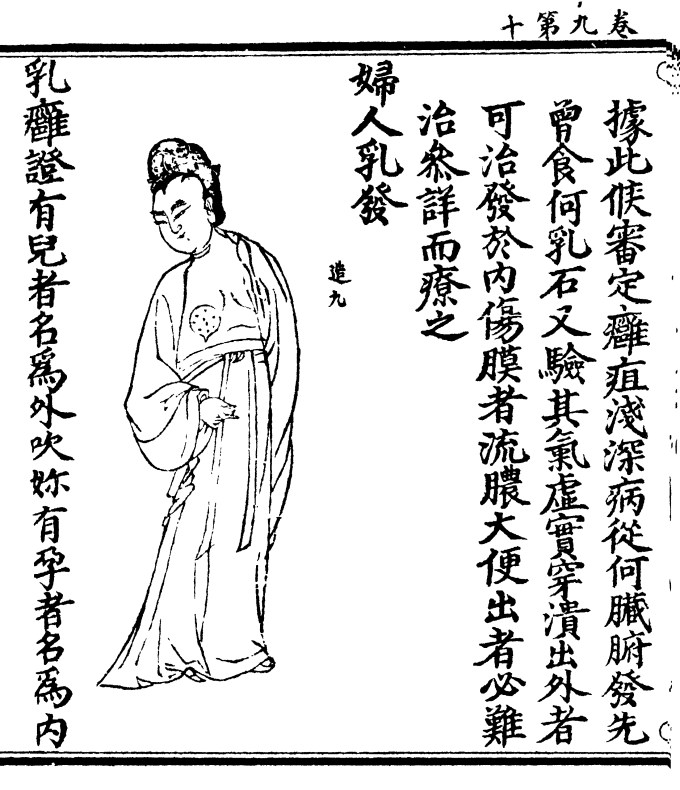 卷九第十
據此候審定癰疽淺深病從何臟腑發先
曾食何乳石又驗其氣虛實穿潰出外者
可治發於內傷膜者流膿大便出者必難
治叅詳而療之
婦人乳發
造九
乳癰證有兒者名爲外吹妳有孕者名爲內